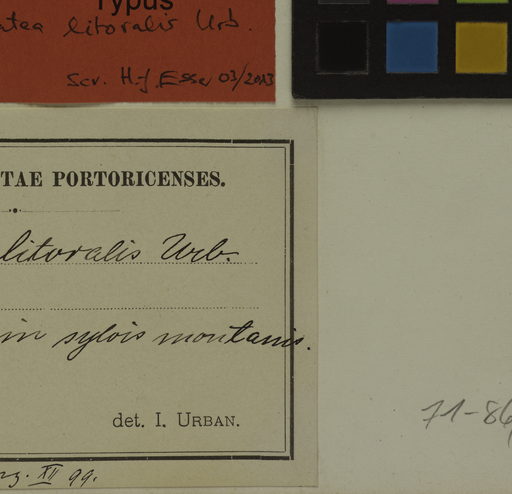 Typus
litoralis Urb.
Scr. H-J. Esser 03/2013
TAE PORTORICENSES.
litoralis Urb.
in sylvis montanis.
det. I. URBAN.
XII 99.
71-86